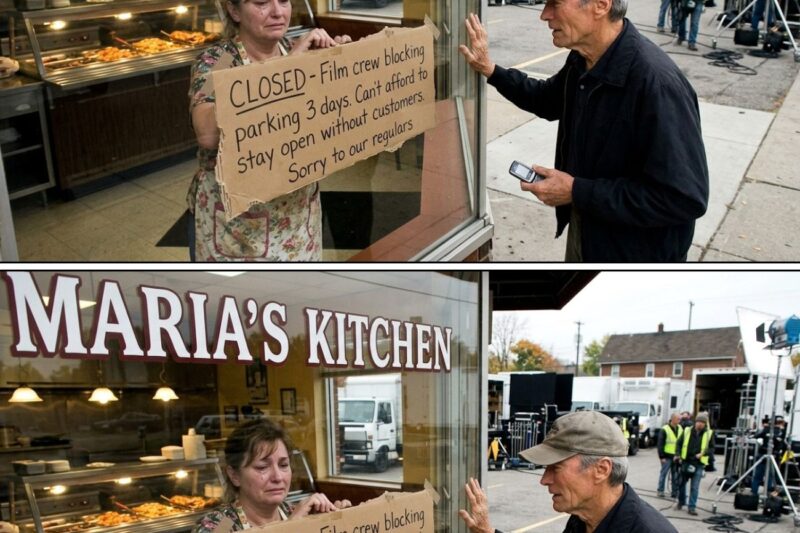 CLOSED - Film crew blocking
parking 3 days. Can't afford to
stay open without customers.
Sorry to our regulars
MARIA'S KITCHEN
Film crew blocking